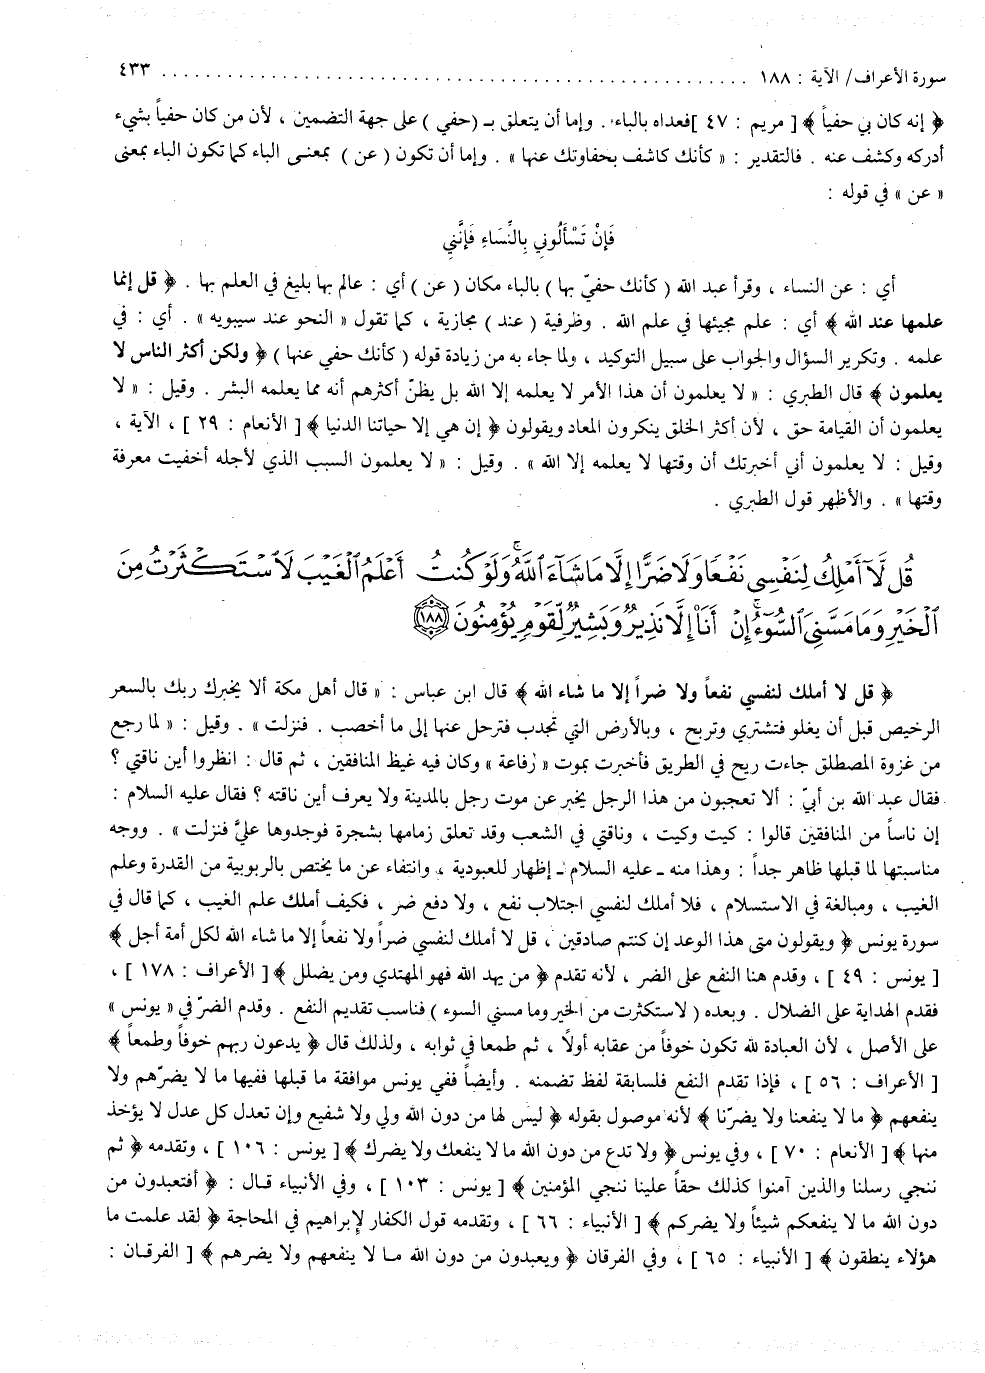 سورة الأعراف/ الآية : ١٨٨ .................................................. ٤٣٣
﴿ إنه كان بي حفياً ﴾ [ مريم : ٤٧ ]فعداه بالباء . وإما أن يتعلق بـ (حفي ) على جهة التضمين ، لأن من كان حفياً بشيء
أدركه وكشف عنه . فالتقدير : « كأنك كاشف بحفاوتك عنها » . وإما أن تكون ( عن ) بمعنى الباء كما تكون الباء بمعنى
« عن » في قوله :
فَإِنْ تَسْأَلُونِي بِالنِّسَاءِ فَإِنَّنِي
أي : عن النساء ، وقرأ عبد الله ( كأنك حفيّ بها ) بالباء مكان ( عن ) أي : عالم بها بليغ في العلم بها . ﴿ قل إنما
علمها عند الله ﴾ أي : علم مجيئها في علم الله . وظرفية ( عند ) مجازية ، كما تقول « النحو عند سيبويه » . أي : في
علمه . وتكرير السؤال والجواب على سبيل التوكيد ، ولما جاء به من زيادة قوله ( كأنك حفي عنها ) ﴿ ولكن أكثر الناس لا
يعلمون ﴾ قال الطبري : « لا يعلمون أن هذا الأمر لا يعلمه إلا الله بل يظنّ أكثرهم أنه مما يعلمه البشر . وقيل : « لا
يعلمون أن القيامة حق ، لأن أكثر الخلق ينكرون المعاد ويقولون ﴿ إن هي إلا حياتنا الدنيا ﴾ [ الأنعام : ٢٩ ] ، الآية ،
وقيل : لا يعلمون أني أخبرتك أن وقتها لا يعلمه إلا الله » . وقيل : « لا يعلمون السبب الذي لأجله أخفيت معرفة
وقتها » . والأظهر قول الطبري .
قُل لَّآ أَمۡلِكُ لِنَفۡسِي نَفۡعًا وَلَا ضَرًّا إِلَّا مَا شَآءَ ٱللَّهُۚ وَلَوۡ كُنتُ أَعۡلَمُ ٱلۡغَيۡبَ لَٱسۡتَكۡثَرۡتُ مِنَ
ٱلۡخَيۡرِ وَمَا مَسَّنِيَ ٱلسُّوٓءُۚ إِنۡ أَنَا۠ إِلَّا نَذِيرٞ وَبَشِيرٞ لِّقَوۡمٖ يُؤۡمِنُونَ ١٨٨
﴿ قل لا أملك لنفسي نفعاً ولا ضراً إلا ما شاء الله ﴾ قال ابن عباس : « قال أهل مكة ألا يخبرك ربك بالسعر
الرخيص قبل أن يغلو فتشتري وتربح ، وبالأرض التي تجدب فترحل عنها إلى ما أخصب . فنزلت » . وقيل : « لما رجع
من غزوة المصطلق جاءت ريح في الطريق فأخبرت بموت « رفاعة » وكان فيه غيظ المنافقين ، ثم قال : انظروا أين ناقتي ؟
فقال عبد الله بن أبيّ : ألا تعجبون من هذا الرجل يخبر عن موت رجل بالمدينة ولا يعرف أين ناقته ؟ فقال عليه السلام :
إن ناساً من المنافقين قالوا : كيت وكيت ، وناقتي في الشعب وقد تعلق زمامها بشجرة فوجدوها عليّ فنزلت » . ووجه
مناسبتها لما قبلها ظاهر جداً : وهذا منه ـ عليه السلام ـ إظهار للعبودية ، وانتفاء عن ما يختص بالربوبية من القدرة وعلم
الغيب ، ومبالغة في الاستسلام ، فلا أملك لنفسي اجتلاب نفع ، ولا دفع ضر ، فكيف أملك علم الغيب ، كما قال في
سورة يونس ﴿ ويقولون متى هذا الوعد إن كنتم صادقين ، قل لا أملك لنفسي ضراً ولا نفعاً إلا ما شاء الله لكل أمة أجل ﴾
[ يونس : ٤٩ ] ، وقدم هنا النفع على الضر ، لأنه تقدم ﴿ من يهد الله فهو المهتدي ومن يضلل ﴾ [ الأعراف : ١٧٨ ] ،
فقدم الهداية على الضلال . وبعده ( لاستكثرت من الخير وما مسني السوء ) فناسب تقديم النفع . وقدم الضرّ في « يونس »
على الأصل ، لأن العبادة لله تكون خوفاً من عقابه أولًا ، ثم طمعا في ثوابه ، ولذلك قال ﴿ يدعون ربهم خوفاً وطمعاً ﴾
[ الأعراف : ٥٦ ] ، فإذا تقدم النفع فلسابقة لفظ تضمنه . وأيضاً ففي يونس موافقة ما قبلها ففيها ما لا يضرّهم ولا
ينفعهم ﴿ ما لا ينفعنا ولا يضرّنا ﴾ لأنه موصول بقوله ﴿ ليس لها من دون الله ولي ولا شفيع وإن تعدل كل عدل لا يؤخذ
منها ﴾ [ الأنعام : ٧٠ ] ، وفي يونس ﴿ ولا تدع من دون الله ما لا ينفعك ولا يضرك ﴾ [ يونس : ١٠٦ ] ، وتقدمه ﴿ ثم
ننجي رسلنا والذين آمنوا كذلك حقاً علينا ننجي المؤمنين ﴾ [ يونس : ١٠٣ ] ، وفي الأنبياء قال : ﴿ أفتعبدون من
دون الله ما لا ينفعكم شيئاً ولا يضركم ﴾ [ الأنبياء : ٦٦ ] ، وتقدمه قول الكفار لإبراهيم في المحاجة ﴿ لقد علمت ما
هؤلاء ينطقون ﴾ [ الأنبياء : ٦٥ ] ، وفي الفرقان ﴿ ويعبدون من دون الله ما لا ينفعهم ولا يضرهم ﴾ [ الفرقان :